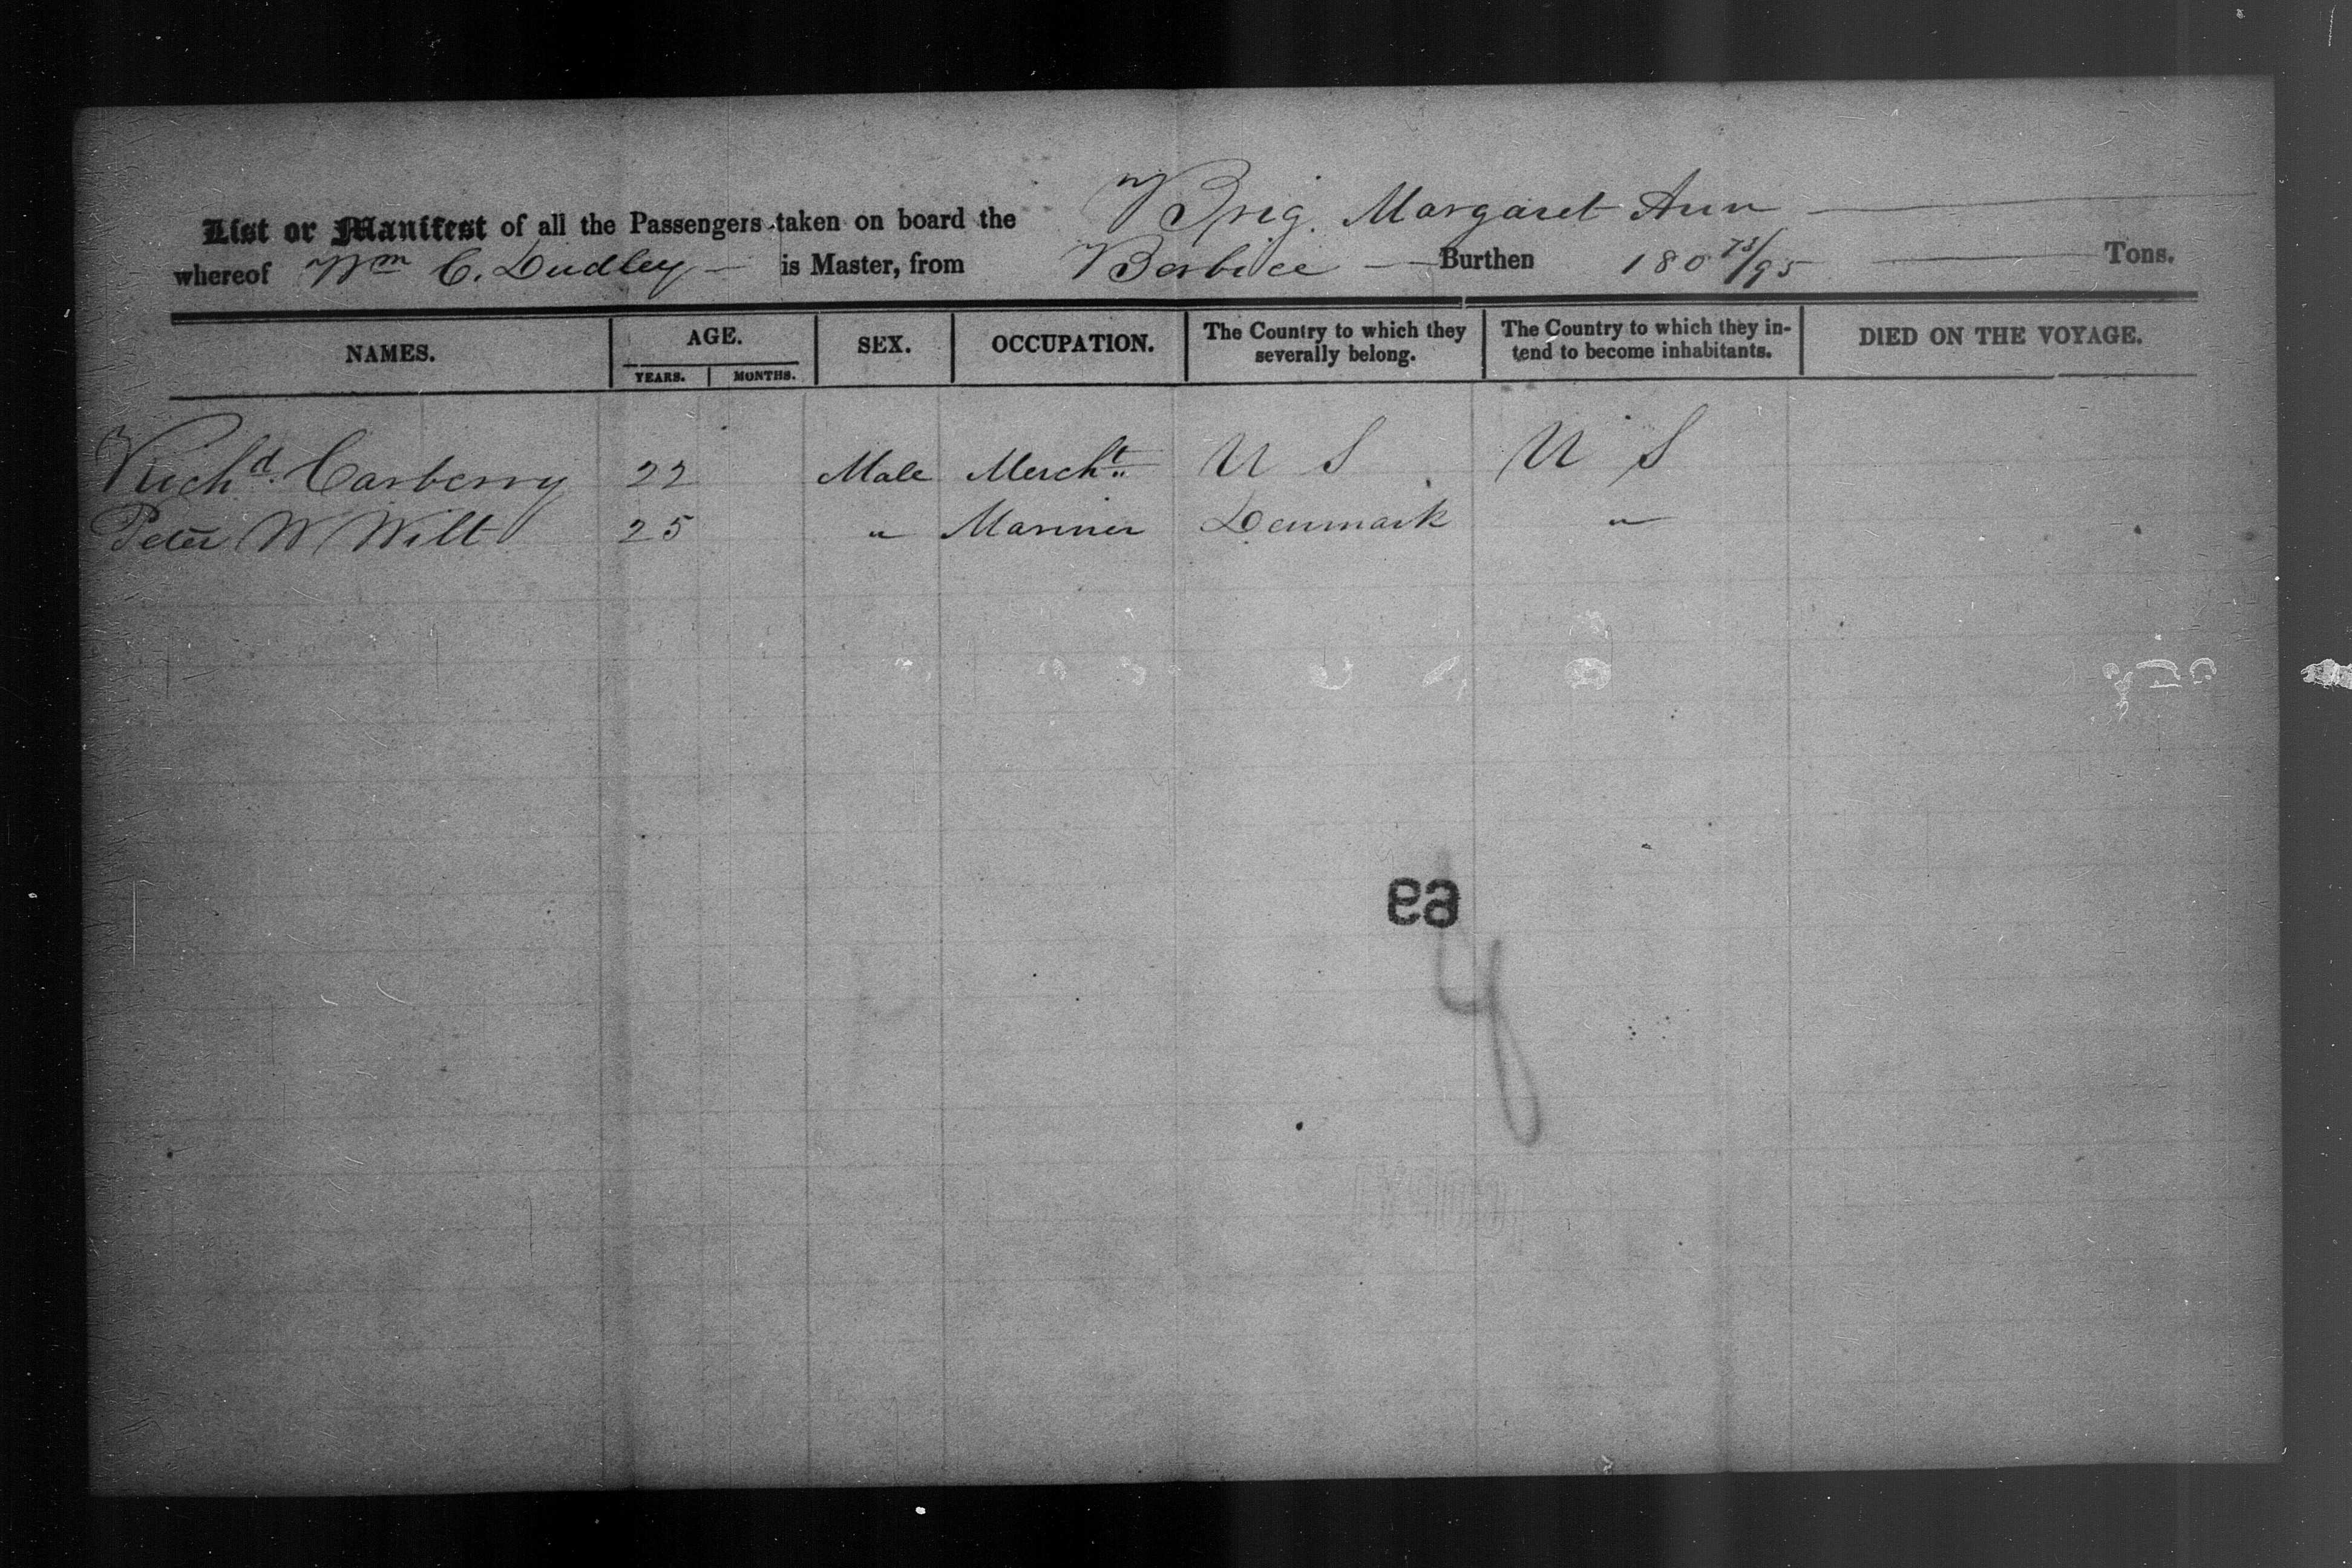 List or Manifest of all the Passengers taken on board the Brig. Margaret Ann
whereof Wm C. Dudley is Master, from Berbice Burthen 180 73/95 Tons.
NAMES. AGE. SEX. OCCUPATION. The Country to which they severally belong. The Country to which they in-tend to become inhabitants. DIED ON THE VOYAGE.
YEARS. MONTHS.
Richd. Carberry 22 Male Mercht. U S U S
Peter W Wilt 25 " Mariner Denmark "
69